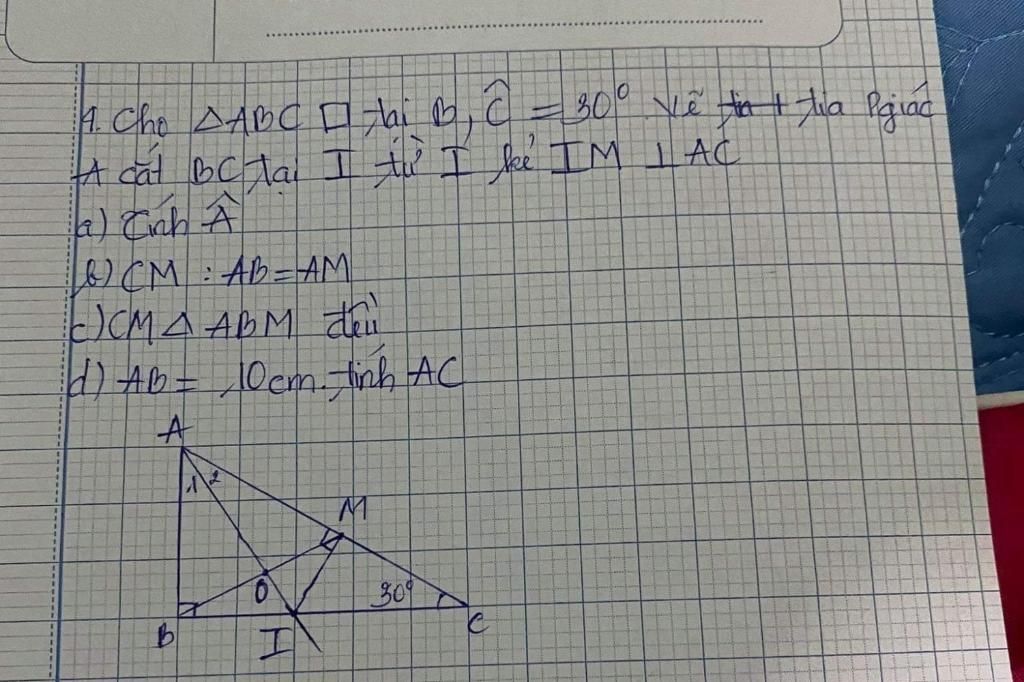 1. Cho △ABC □ tại B, Ĉ = 30° Vẽ tia Pgiác
A cắt BC tại I từ I kẻ IM ⊥ AC
a) Tính Â
b) CM : AB = AM
c) CM △ ABM đều
d) AB = 10cm. tính AC
A
1 2
M
O
30°
B
I
C